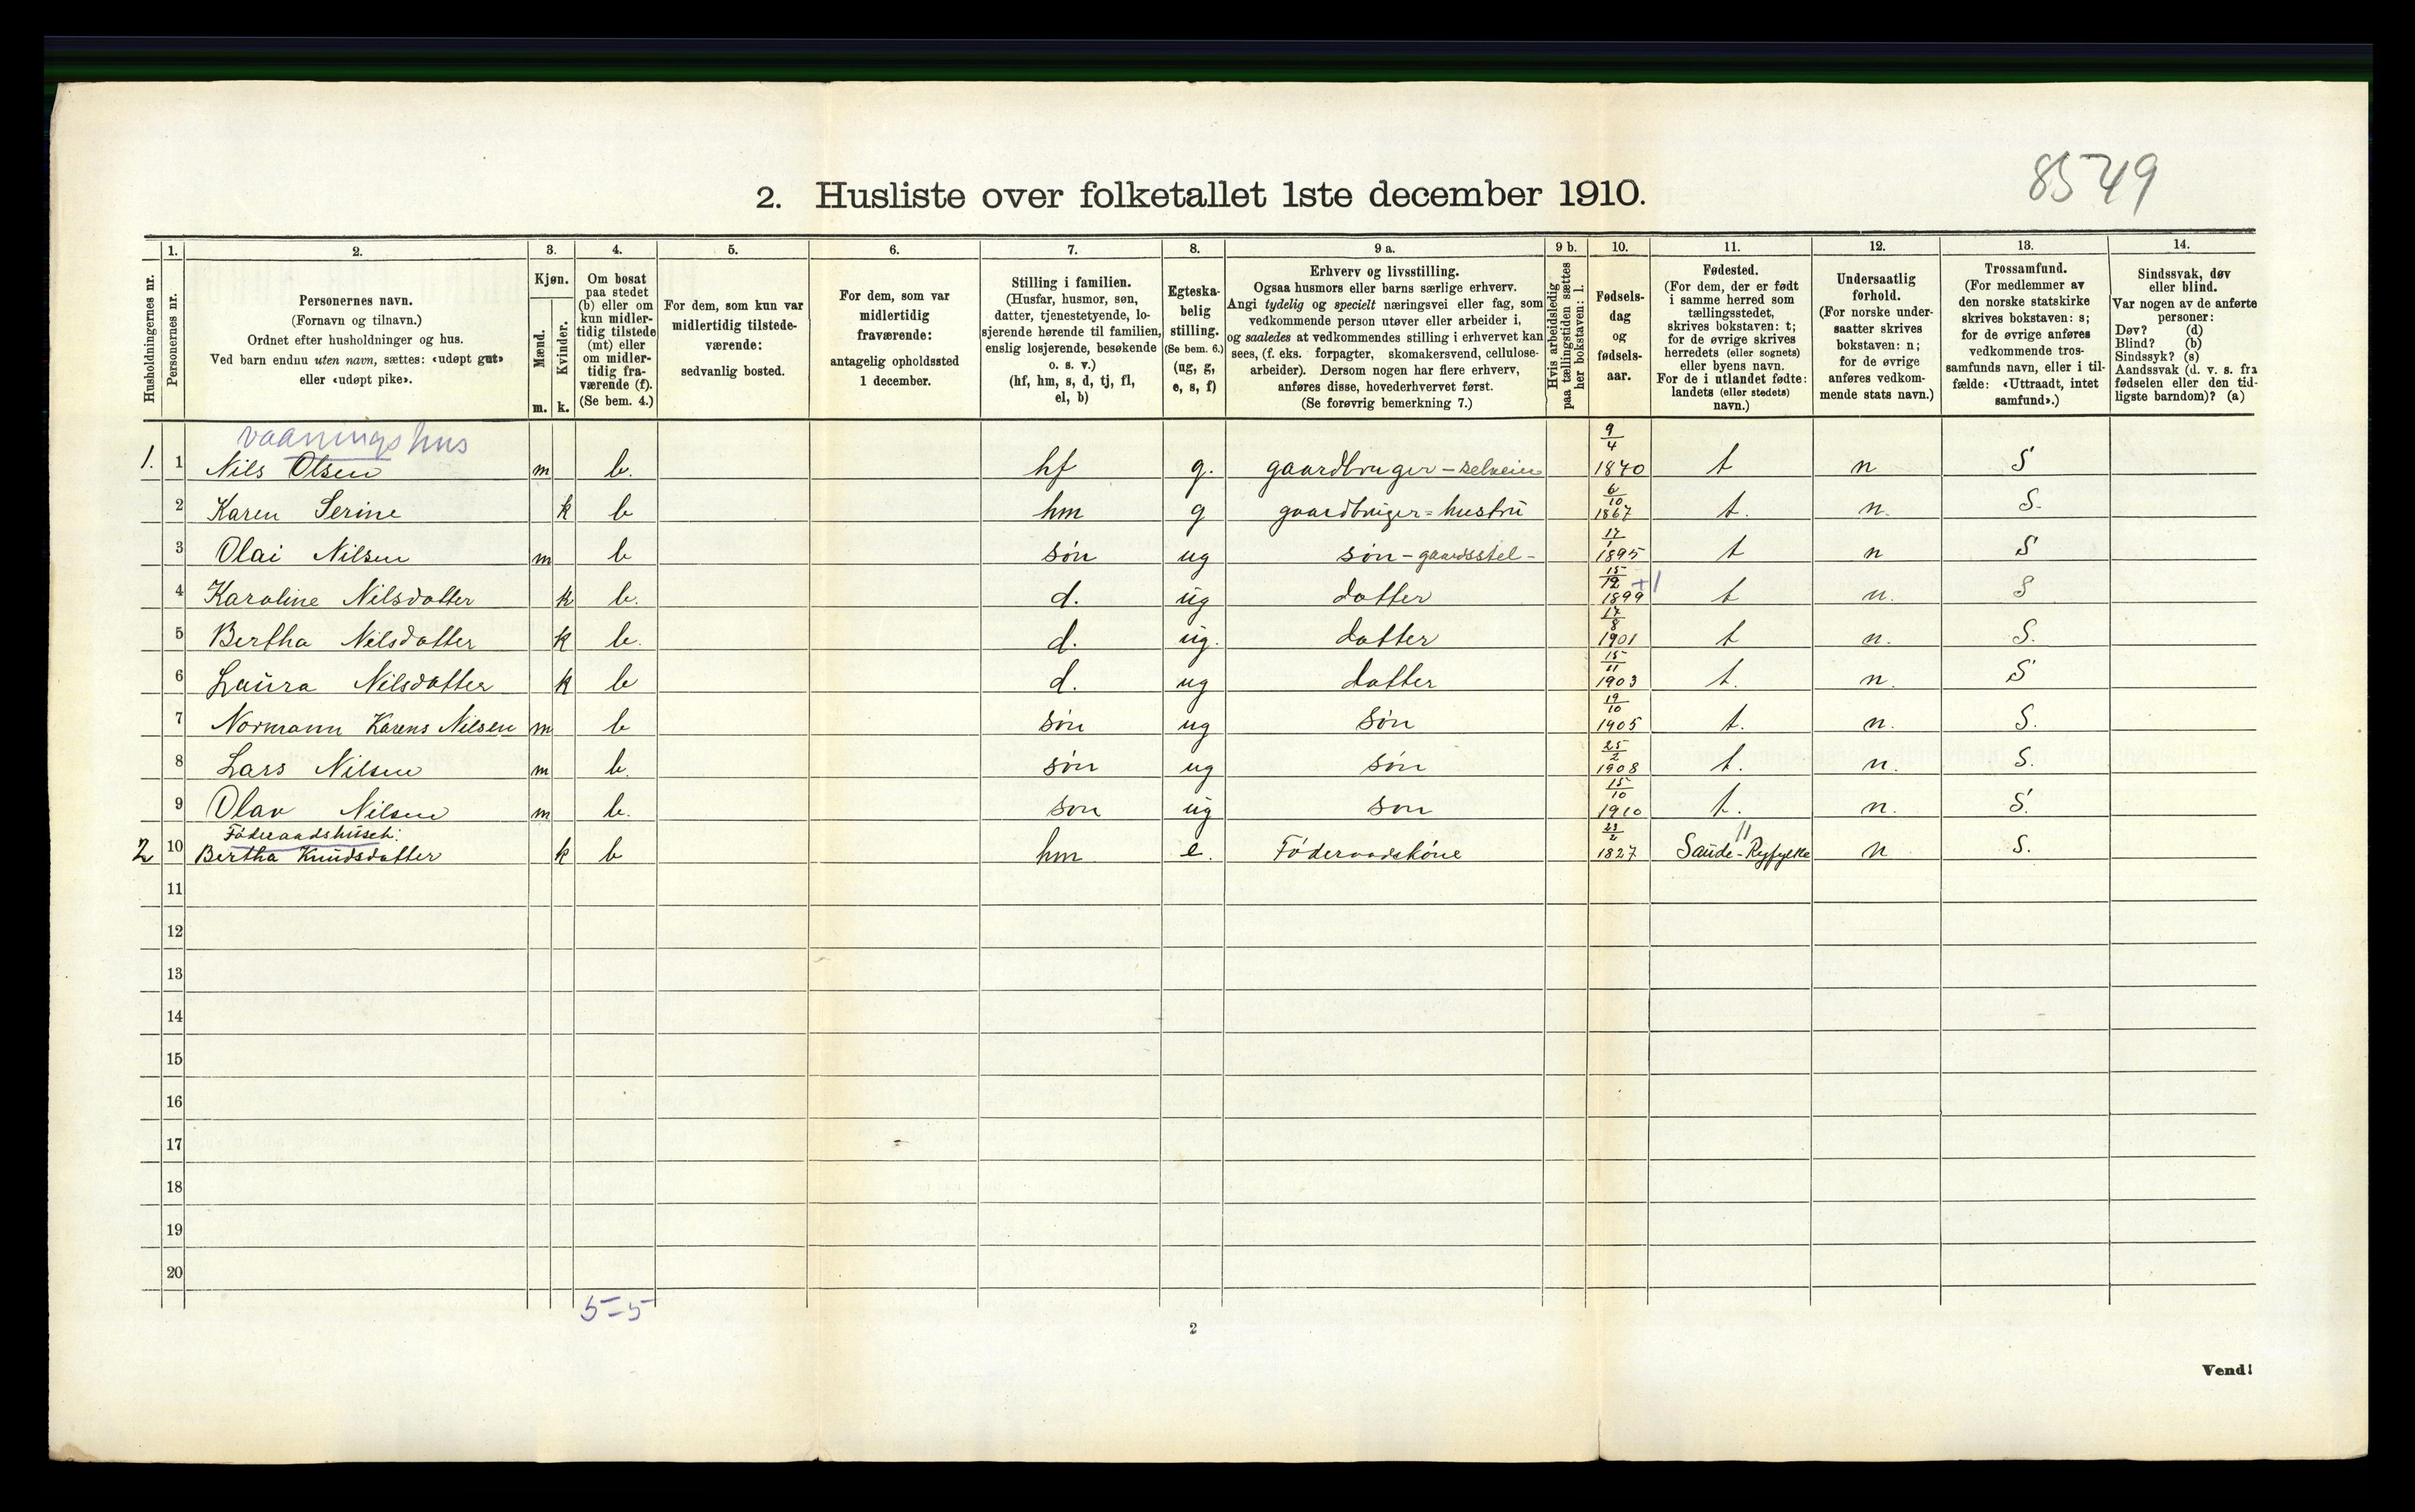 8549
2. Husliste over folketallet 1ste december 1910.
Husholdningernes nr.
1. Personernes nr.
2. Personernes navn.
(Fornavn og tilnavn.)
Ordnet efter husholdninger og hus.
Ved barn endnu uten navn, sættes: «udøpt gut»
eller «udøpt pike».
3. Kjøn.
Mænd. m.
Kvinder. k.
4. Om bosat
paa stedet
(b) eller om
kun midler-
tidig tilstede
(mt) eller
om midler-
tidig fra-
værende (f).
(Se bem. 4.)
5. For dem, som kun var
midlertidig tilstede-
værende:
sedvanlig bosted.
6. For dem, som var
midlertidig
fraværende:
antagelig opholdssted
1 december.
7. Stilling i familien.
(Husfar, husmor, søn,
datter, tjenestetyende, lo-
sjerende hørende til familien,
enslig losjerende, besøkende
o. s. v.)
(hf, hm, s, d, tj, fl,
el, b)
8. Egteska-
belig
stilling.
(Se bem. 6.)
(ug, g,
e, s, f)
9 a. Erhverv og livsstilling.
Ogsaa husmors eller barns særlige erhverv.
Angi tydelig og specielt næringsvei eller fag, som
vedkommende person utøver eller arbeider i,
og saaledes at vedkommendes stilling i erhvervet kan
sees, (f. eks. forpagter, skomakersvend, cellulose-
arbeider). Dersom nogen har flere erhverv,
anføres disse, hovederhvervet først.
(Se forøvrig bemerkning 7.)
9 b. Hvis arbeidsledig
paa tællingstiden sættes
her bokstaven: l.
10. Fødsels-
dag
og
fødsels-
aar.
11. Fødested.
(For dem, der er født
i samme herred som
tællingsstedet,
skrives bokstaven: t;
for de øvrige skrives
herredets (eller sognets)
eller byens navn.
For de i utlandet fødte:
landets (eller stedets)
navn.)
12. Undersaatlig
forhold.
(For norske under-
saatter skrives
bokstaven: n;
for de øvrige
anføres vedkom-
mende stats navn.)
13. Trossamfund.
(For medlemmer av
den norske statskirke
skrives bokstaven: s;
for de øvrige anføres
vedkommende tros-
samfunds navn, eller i til-
fælde: «Uttraadt, intet
samfund».)
14. Sindssvak, døv
eller blind.
Var nogen av de anførte
personer:
Døv? (d)
Blind? (b)
Sindssyk? (s)
Aandssvak (d. v. s. fra
fødselen eller den tid-
ligste barndom)? (a)
vaaningshus
1. 1 Nils Olsen m b. hf g. gaardbruger – selveier 9/4 1840 t n S
2 Karen Serine k b hm g gaardbruger = hustru 6/10 1867 t. n. S.
3 Olai Nilsen m b søn ug søn – gaardsstel – 17/1 1895 t n S
4 Karoline Nilsdatter k b. d. ug datter 15/12 1899 +1 t n. S
5 Bertha Nilsdatter k b. d. ug. datter 17/8 1901 t n. S.
6 Laura Nilsdatter k b d. ug datter 15/11 1903 t. n. S
7 Normann Karens Nilsen m b søn ug søn 19/10 1905 t. n. S.
8 Lars Nilsen m b. søn ug søn 25/2 1908 t. n. S.
9 Olav Nilsen m b. søn ug søn 15/10 1910 t. n. S.
Föderaadshuset:
2 10 Bertha Knudsdatter k b hm e. Föderaadskone 23/2 1827 Saude – Ryfylke 11 n S.
11
12
13
14
15
16
17
18
19
20
5=5
2
Vend!